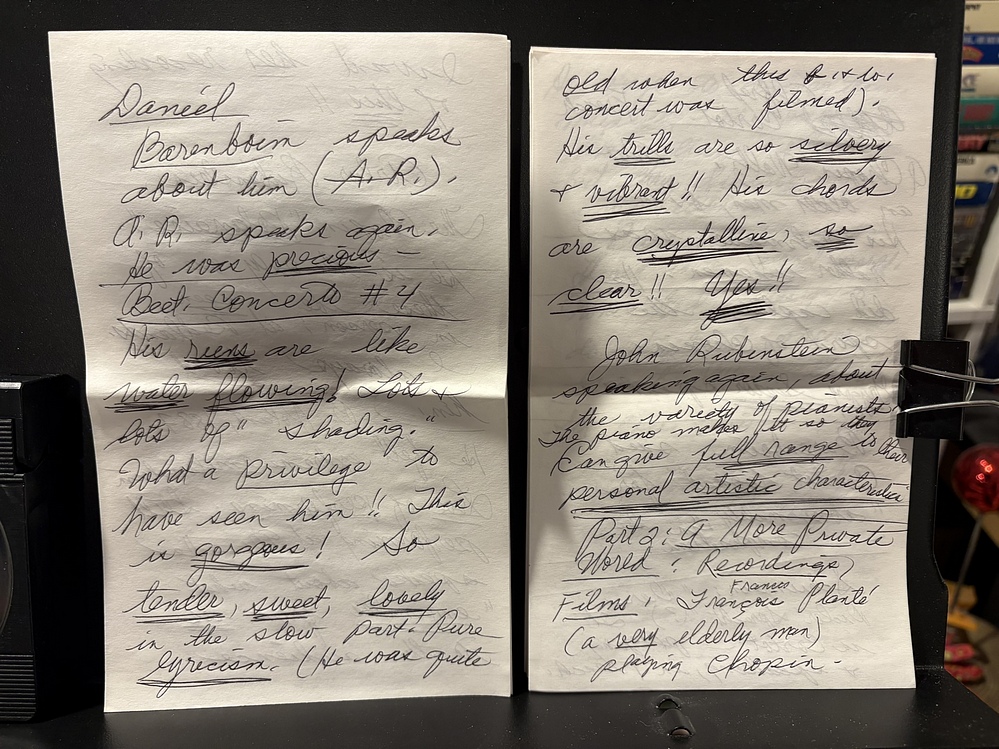 Daniel
Barenboim speaks
about him (A. R.).
A. R. speaks again.
He was precious –
Beet. Concerto #4
His runs are like
water flowing! Lots &
lots of "shading."
What a privilege to
have seen him!! This
is gorgeous! So
tender, sweet, lovely
in the slow part. Pure
lyrecism. (He was quite
old when this b. & w.
concert was filmed).
His trills are so silvery
& vibrant!! His chords
are crystalline, so
clear!! Yes!!
John Rubinstein
speaking again, about
the variety of pianists.
The piano makes it so they
can give full range to their
personal artistic characteristics
Part 2: A More Private
World: Recordings,
Francis
Films. François Planté
(a very elderly man)
playing Chopin –